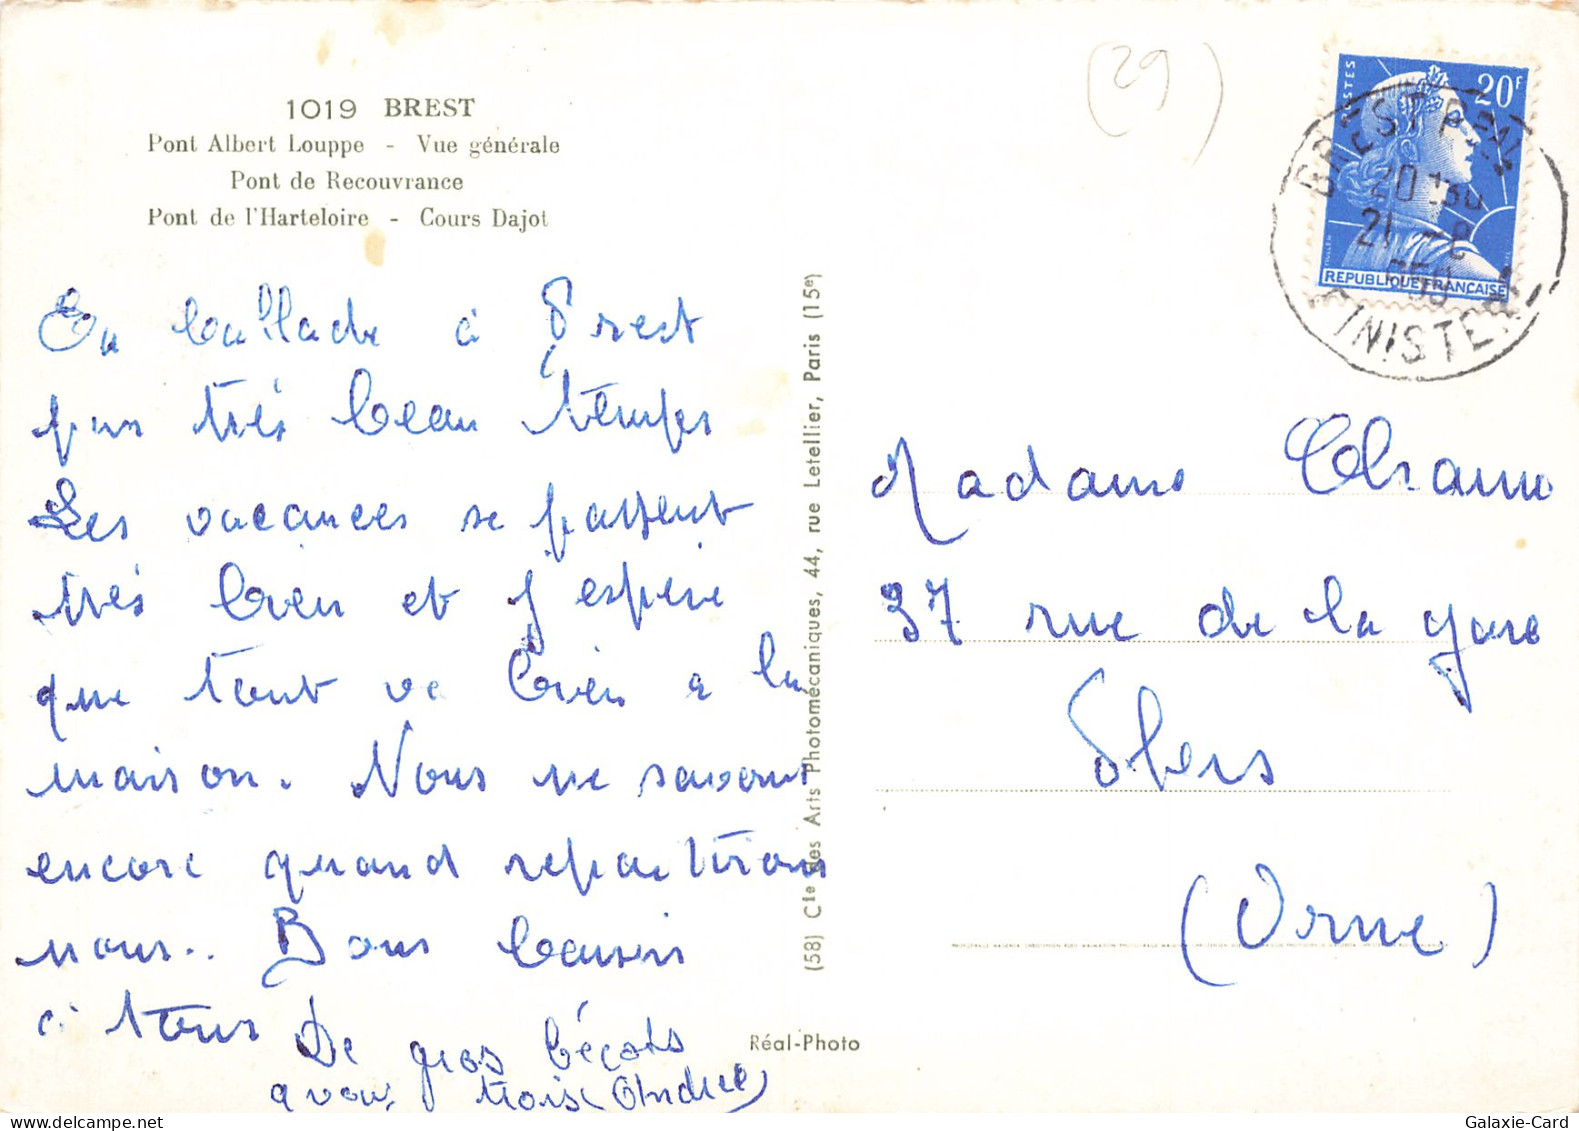 1019 BREST
Pont Albert Louppe - Vue générale
Pont de Recouvrance
Pont de l'Harteloire - Cours Dajot
En ballade à Brest
par très beau temps
Les vacances se passent
très bien et j'espère
que tout va bien a la
maison. Nous ne savons
encore quand repartirons
nous.. Bons baisers
à tous
De gros bécots
a vous trois Andrée
(58) Cie des Arts Photomécaniques, 44, rue Letellier, Paris (15e)
Réal-Photo
(29)
POSTES
20F
REPUBLIQUE FRANÇAISE
BREST PPAL
20 H30
21 -8
FINISTERE
Madame
37 rue de la gare
Flers
(Orne)
Galaxie-Card